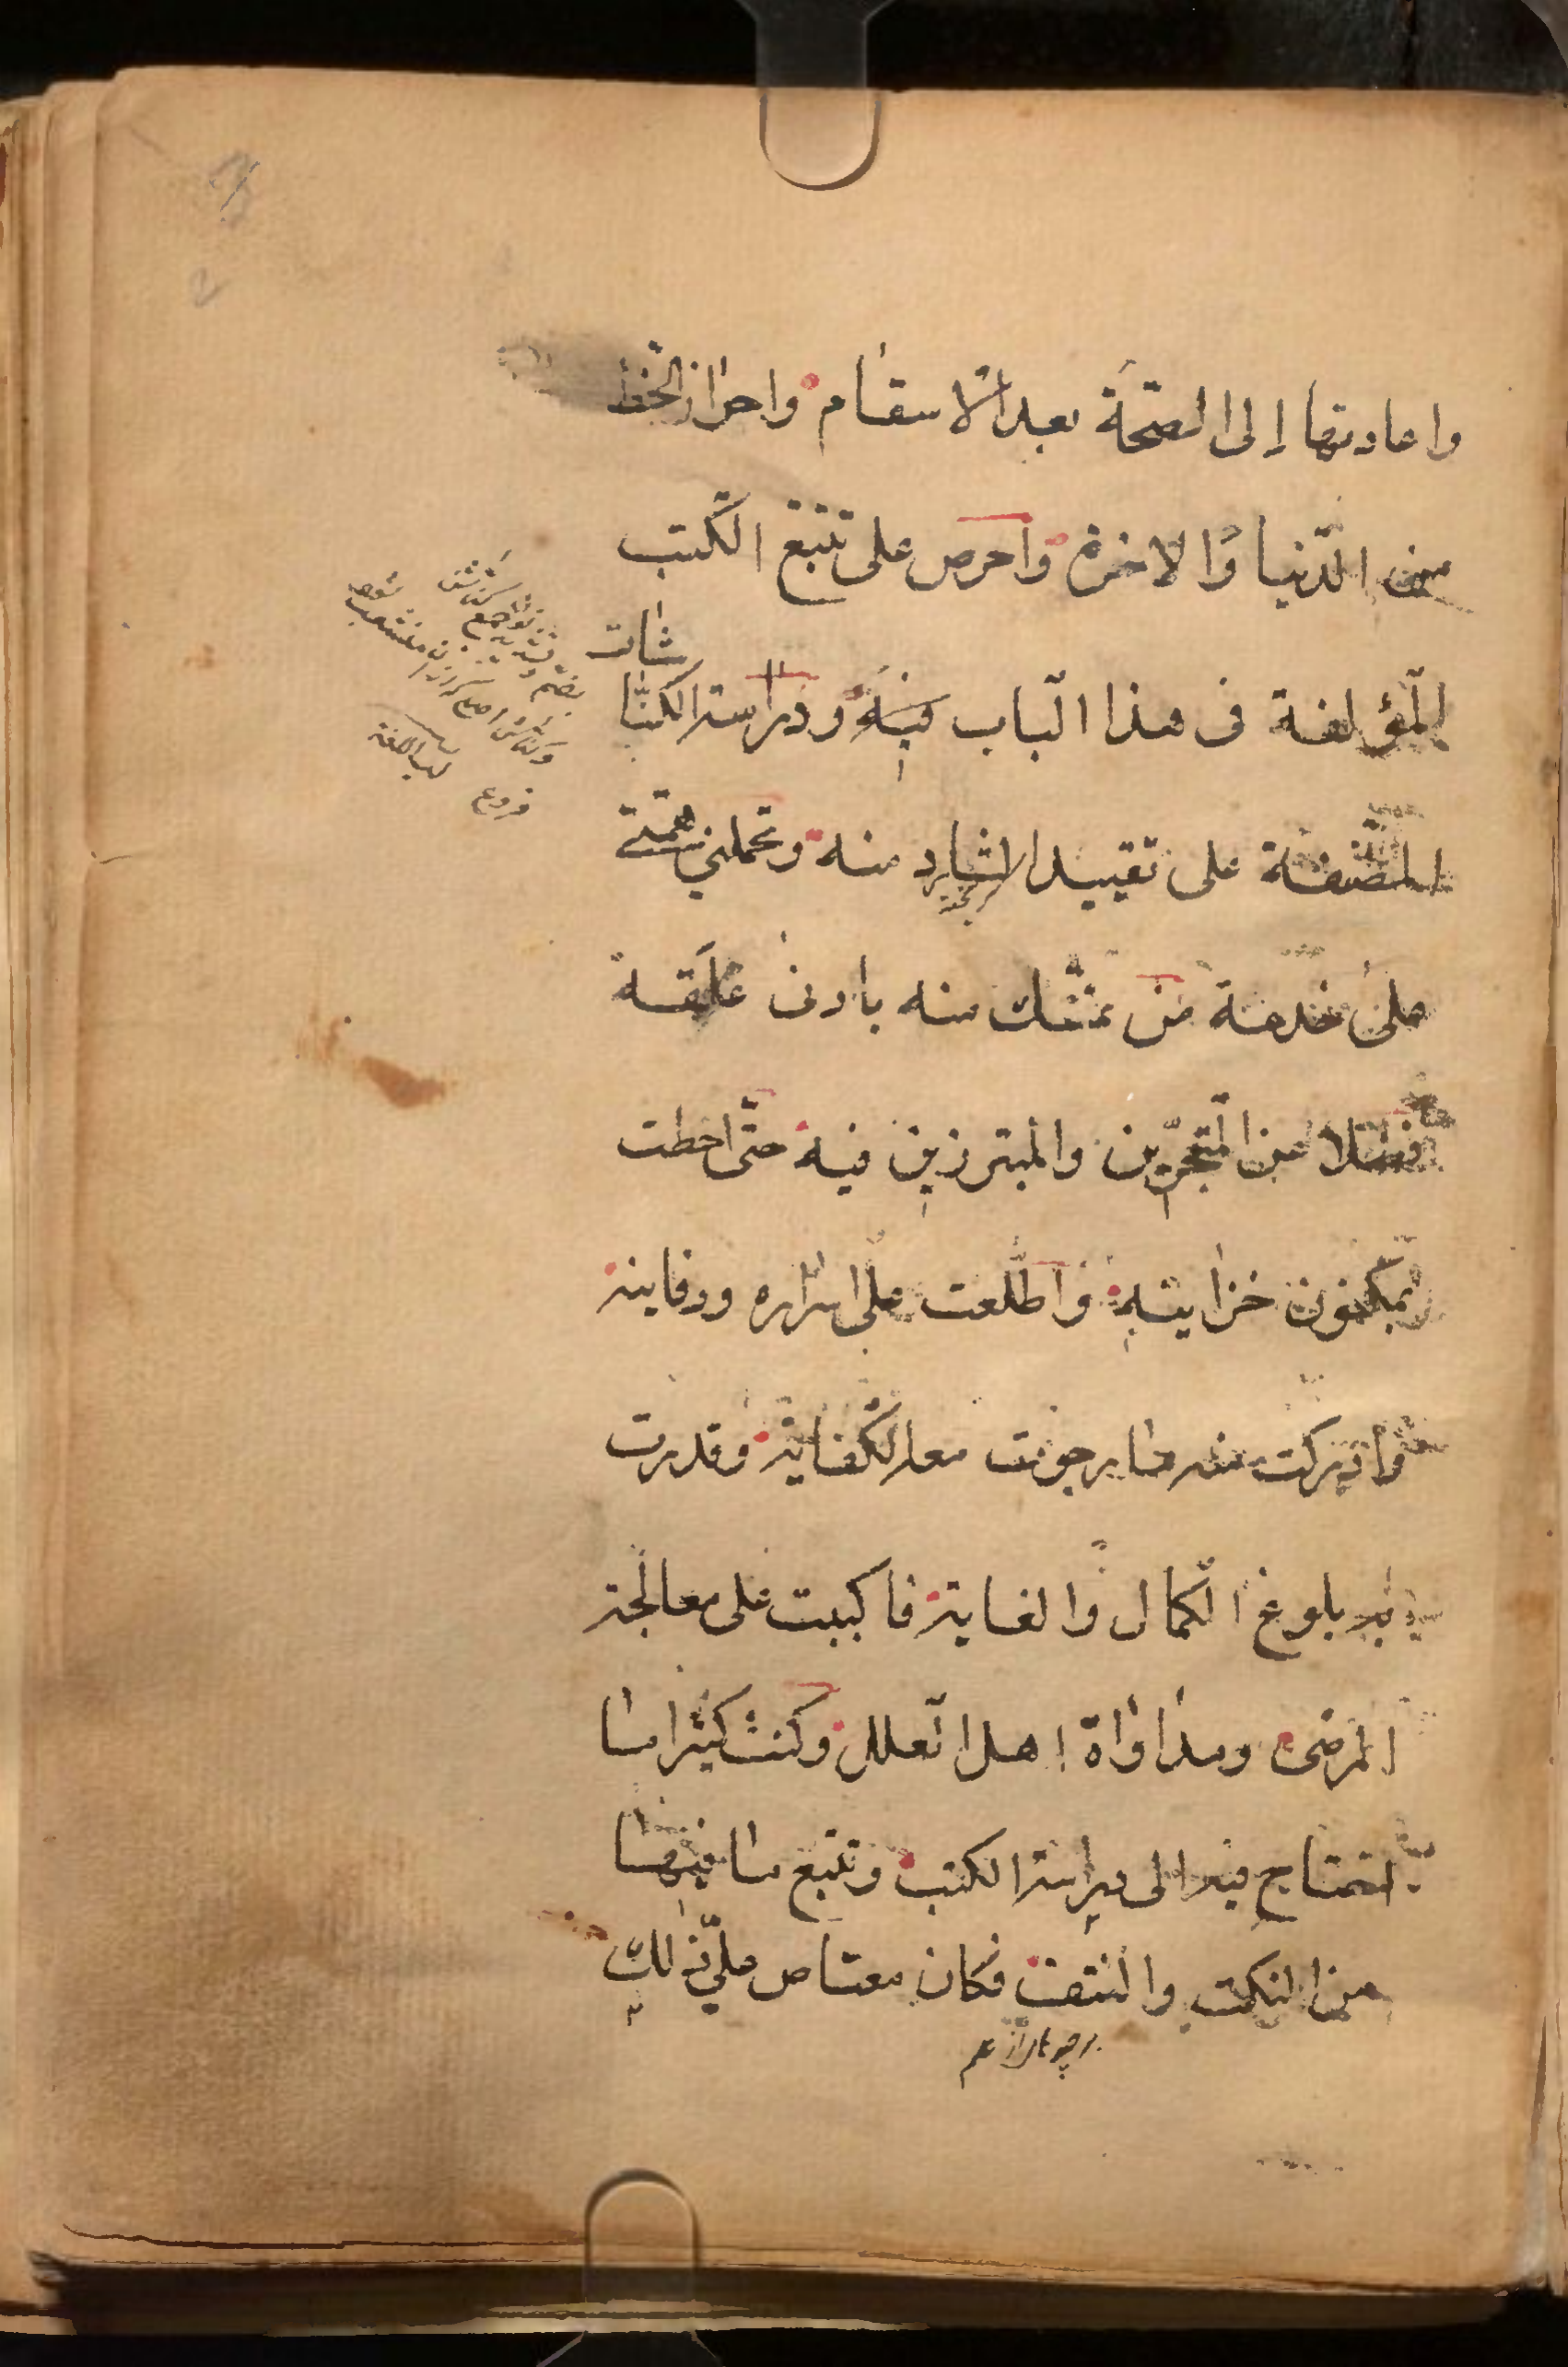 واعادتها إلى الصحّة بعد الاسقام واحراز الحظ
من الدّنيا والاخرة واحرص على تتبّع الكتب
المؤلفة فى هذا الباب فيه ودراسة الكنّا
شات
المصنّفة على تقييد الشارد منه وتحملني همّتى
على خدمة من تمسّك منه بادنى علقة
فضلا عن المتبحّرين والمبرزين فيه حتّى احطت
بمكنون خزاينه واطّلعت على اسراره ودفاينه
وادركت منه ما رجوت معه الكفاية وقدرت
به بلوغ الكمال والغاية فاكببت على معالجة
المرضى ومداواة اهل العلل وكنت كثيرا ما
احتاج فيه الى دراسة الكتب وتتبع ما فيها
من النكت والنتف فكان معتاص علىّ ذلك